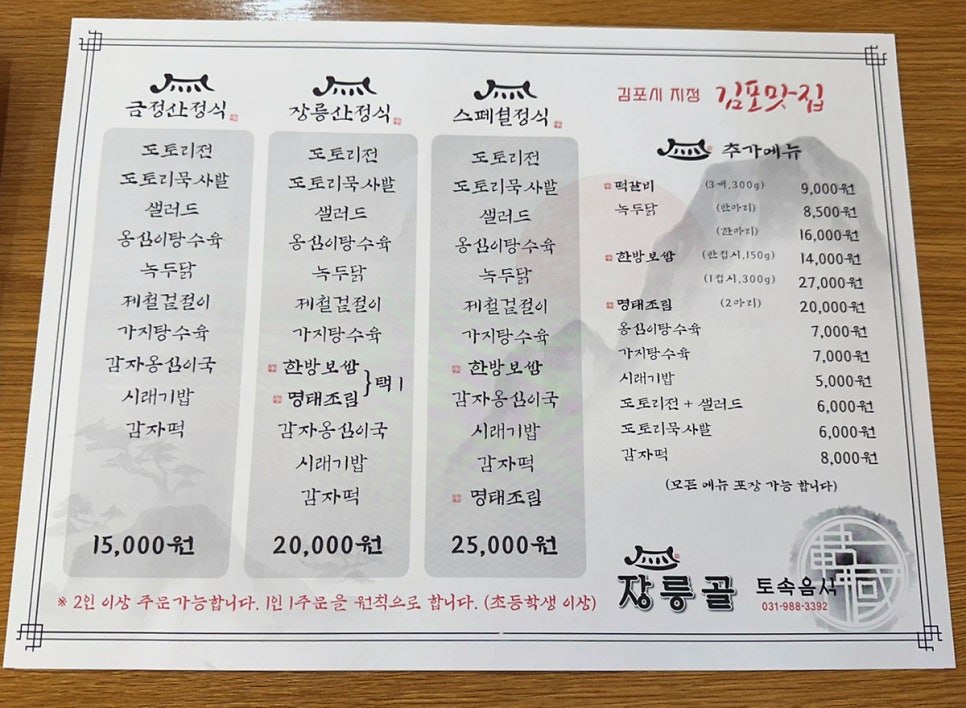 금정산정식
도토리전
도토리묵사발
샐러드
옹심이탕수육
녹두닭
제철겉절이
가지탕수육
감자옹심이국
시래기밥
감자떡
15,000원
장릉산정식
도토리전
도토리묵사발
샐러드
옹심이탕수육
녹두닭
제철겉절이
가지탕수육
한방보쌈
명태조림
} 택 1
감자옹심이국
시래기밥
감자떡
20,000원
스페셜정식
도토리전
도토리묵사발
샐러드
옹심이탕수육
녹두닭
제철겉절이
가지탕수육
한방보쌈
감자옹심이국
시래기밥
감자떡
명태조림
25,000원
※ 2인 이상 주문가능합니다. 1인 1주문을 원칙으로 합니다. (초등학생 이상)
김포시 지정 김포맛집
추가메뉴
떡갈비 (3개, 300g) 9,000원
녹두닭 (반마리) 8,500원
(한마리) 16,000원
한방보쌈 (반접시, 150g) 14,000원
(1접시, 300g) 27,000원
명태조림 (2마리) 20,000원
옹심이탕수육 7,000원
가지탕수육 7,000원
시래기밥 5,000원
도토리전 + 샐러드 6,000원
도토리묵사발 6,000원
감자떡 8,000원
(모든 메뉴 포장 가능 합니다)
장릉골 토속음식
031-988-3392